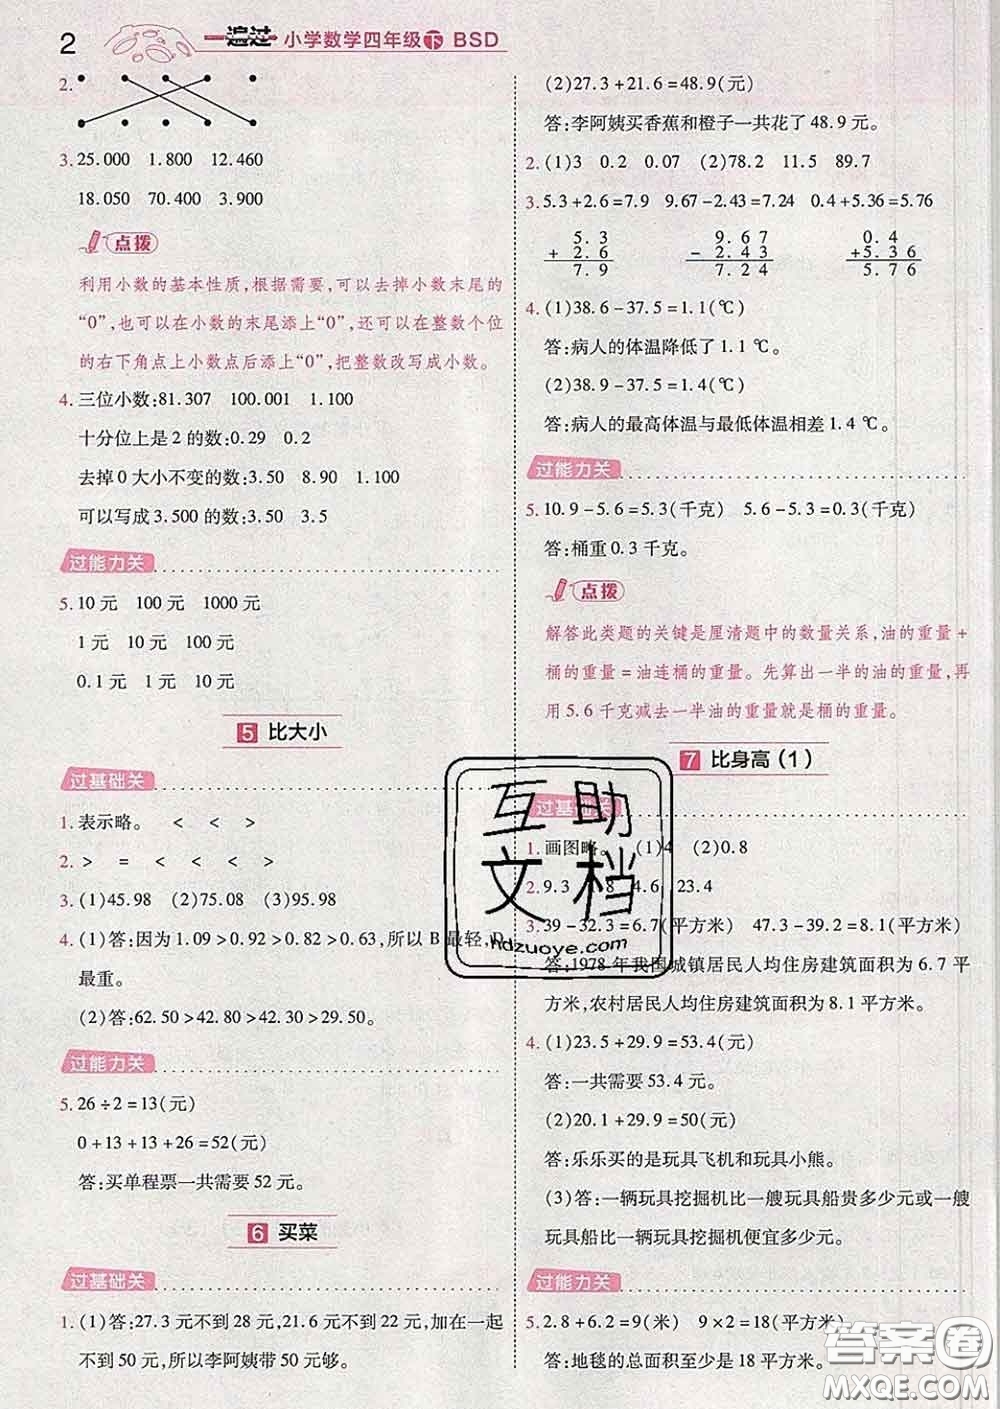 2
一遍过 小学数学四年级 下 BSD
2.
3. 25.000 1.800 12.460
18.050 70.400 3.900
点拨
利用小数的基本性质,根据需要,可以去掉小数末尾的
“0”,也可以在小数的末尾添上“0”,还可以在整数个位
的右下角点上小数点后添上“0”,把整数改写成小数。
4. 三位小数:81.307 100.001 1.100
十分位上是2的数:0.29 0.2
去掉0大小不变的数:3.50 8.90 1.100
可以写成3.500的数:3.50 3.5
过能力关
5. 10元 100元 1000元
1元 10元 100元
0.1元 1元 10元
5 比大小
过基础关
1. 表示略。 < < >
2. > = < < < >
3. (1)45.98 (2)75.08 (3)95.98
4. (1)答:因为1.09>0.92>0.82>0.63,所以B最轻,D
最重。
(2)答:62.50>42.80>42.30>29.50。
过能力关
5. 26÷2=13(元)
0+13+13+26=52(元)
答:买单程票一共需要52元。
6 买菜
过基础关
1. (1)答:27.3元不到28元,21.6元不到22元,加在一起
不到50元,所以李阿姨带50元够。
(2)27.3+21.6=48.9(元)
答:李阿姨买香蕉和橙子一共花了48.9元。
2. (1)3 0.2 0.07 (2)78.2 11.5 89.7
3. 5.3+2.6=7.9 9.67-2.43=7.24 0.4+5.36=5.76
5.3 9.67 0.4
+2.6 -2.43 +5.36
7.9 7.24 5.76
4. (1)38.6-37.5=1.1(℃)
答:病人的体温降低了1.1℃。
(2)38.9-37.5=1.4(℃)
答:病人的最高体温与最低体温相差1.4℃。
过能力关
5. 10.9-5.6=5.3(千克) 5.6-5.3=0.3(千克)
答:桶重0.3千克。
点拨
解答此类题的关键是厘清题中的数量关系,油的重量+
桶的重量=油连桶的重量。先算出一半的油的重量,再
用5.6千克减去一半油的重量就是桶的重量。
7 比身高(1)
过基础关
1. 画图略。 (1)4 (2)0.8
2. 9.3 8 4.6 23.4
3. 39-32.3=6.7(平方米) 47.3-39.2=8.1(平方米)
答:1978年我国城镇居民人均住房建筑面积为6.7平
方米,农村居民人均住房建筑面积为8.1平方米。
4. (1)23.5+29.9=53.4(元)
答:一共需要53.4元。
(2)20.1+29.9=50(元)
答:乐乐买的是玩具飞机和玩具小熊。
(3)答:一辆玩具挖掘机比一艘玩具船贵多少元或一艘
玩具船比一辆玩具挖掘机便宜多少元。
过能力关
5. 2.8+6.2=9(米) 9×2=18(平方米)
答:地毯的总面积至少是18平方米。
互助
文档
hdzuoye.com
答案圈
MXQE.COM